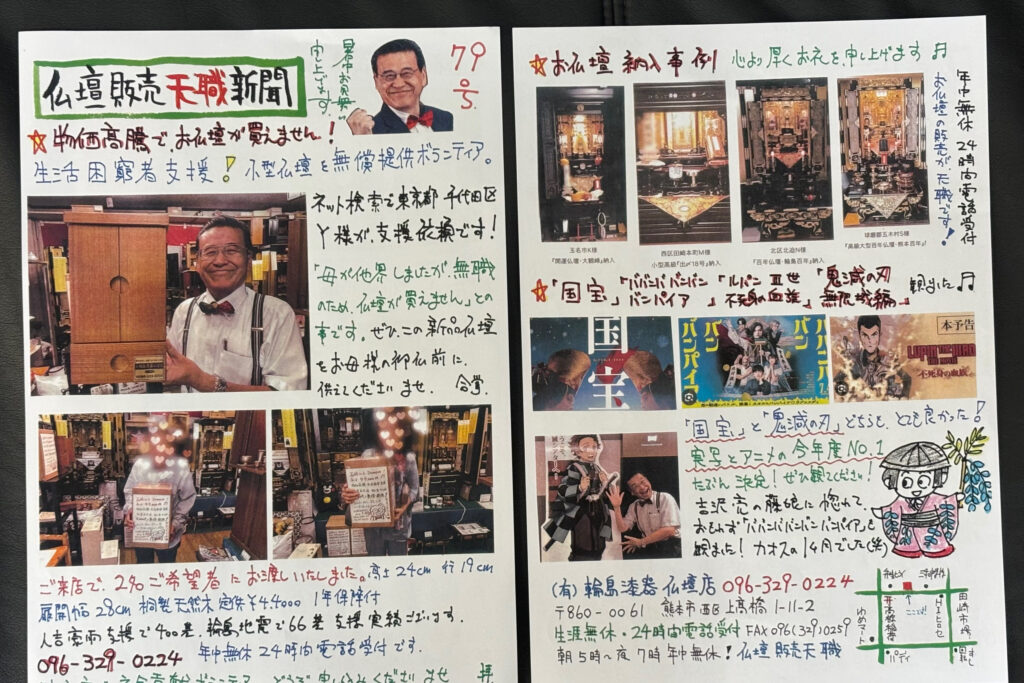 仏壇販売天職新聞
暑中お見舞い
申し上げます。
79
☆物価高騰で、お仏壇が買えません!
生活困窮者支援!小型仏壇を無償提供ボランティア。
ネット検索で東京都千代田区
Y様が、支援依頼です!
「母が他界しましたが、無職
のため、仏壇が買えません」との
事です。ぜひ、この新品仏壇
をお母様の御仏前に、
供えてくださいませ。合掌
ご来店で、2名ご希望者にお渡しいたしました。高さ24cm 行19cm
扉開幅28cm 桐製天然木 定価¥44000 1年保障付
人吉豪雨支援で400基、輪島地震で66基支援実績ございます。
096-329-0224 年中無休24時間電話受付です。
☆お仏壇納入事例 心より厚くお礼を申し上げます♬
年中無休24時間電話受付
お仏壇の販売が天職です!
玉名市K様
『開運仏壇・大観峰』納入
西区田崎本町M様
小型高級『出〆18号』納入
北区北迫N様
『百年仏壇・輪島百年』納入
球磨郡五木村S様
『高級大型百年仏壇・熊本百年』
☆「国宝」「ババンババンバンバンパイア」「ルパン三世 不死身の血族」「鬼滅の刃 無限城編」観ました♬
国宝
ババンババンバンバンパイア
本予告
"不死身の血族"
「国宝」と「鬼滅の刃」どちらも、とても良かった!
実写とアニメの今年度NO.1
たぶん決定!ぜひ観てください!
吉沢亮の藤娘に惚れて、
おもわず「ババンババンバンバンパイア」も
観ました!カオスの1ヶ月でした(笑)
(有)輪島漆器仏壇店 096-329-0224
〒860-0061 熊本市西区上高橋1-11-2
生涯無休・24時間電話受付 FAX096(329)0259
朝5時~夜7時 年中無休!仏壇販売天職
ここ
田崎市場